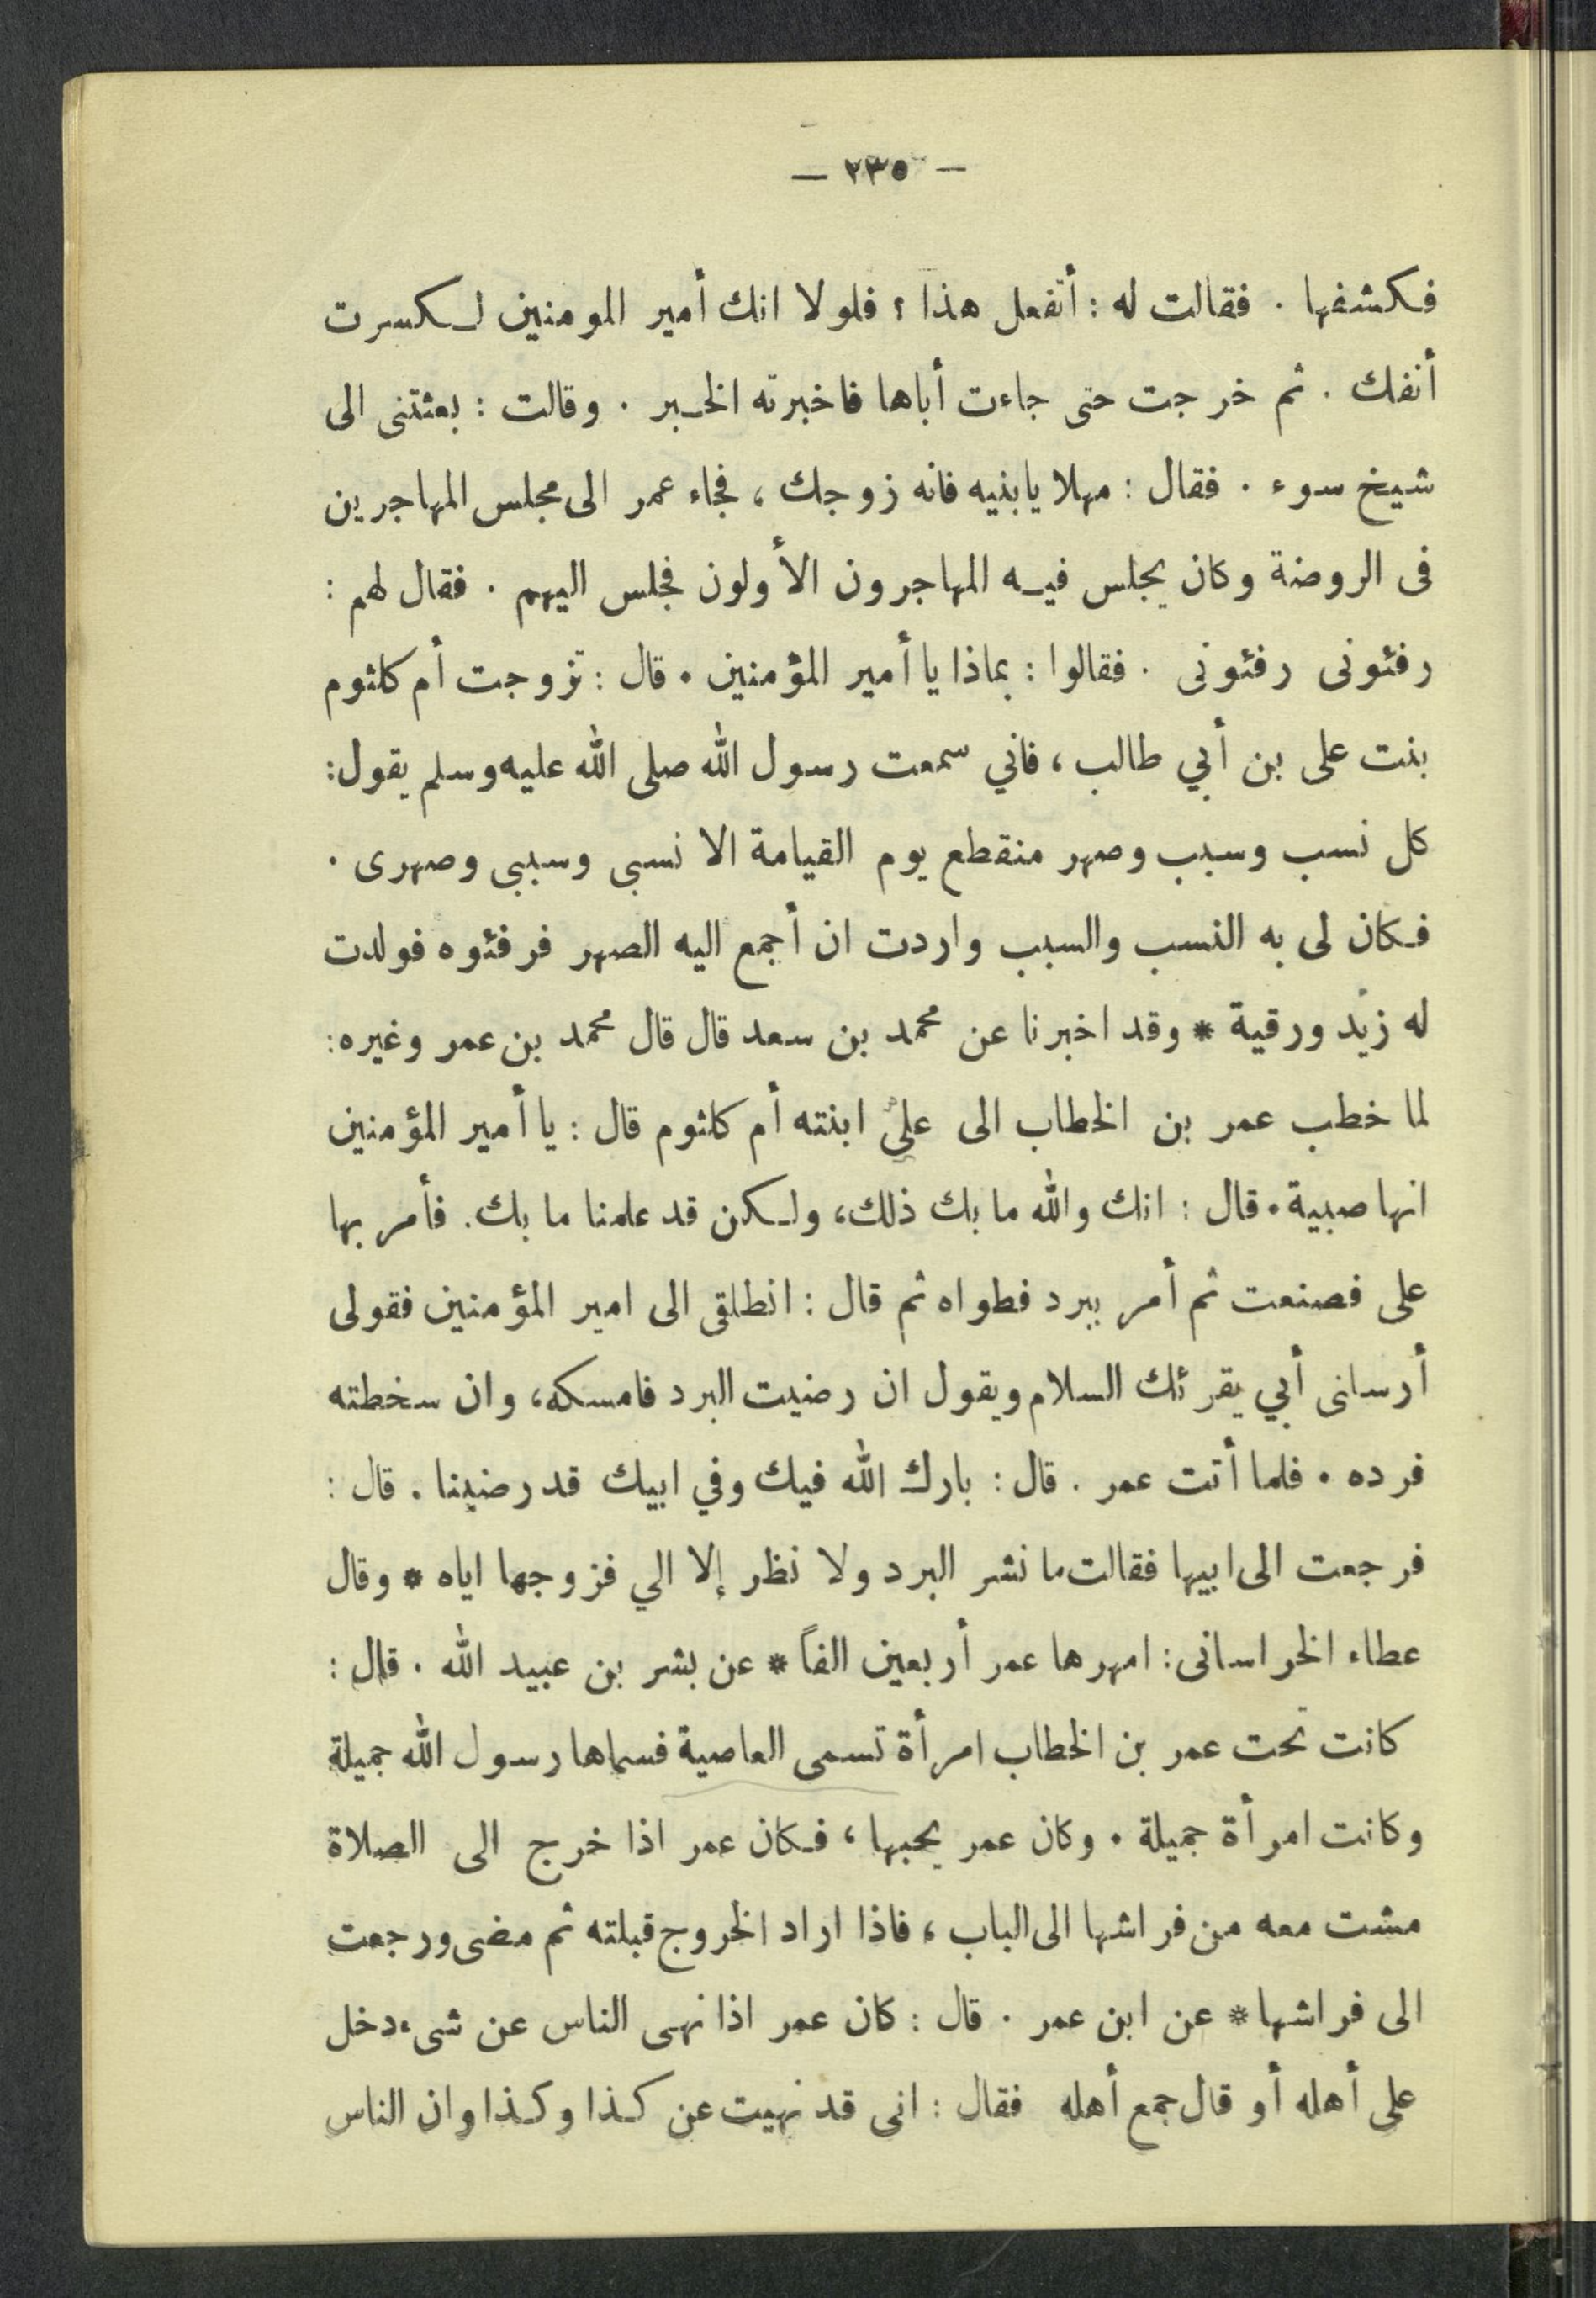 — ٢٣٥ —
فكشفها . فقالت له : أتفعل هذا ؟ فلولا انك أمير المومنين لكسرت
أنفك . ثم خرجت حتى جاءت أباها فاخبرته الخبر . وقالت : بعثتنى الى
شيخ سوء . فقال : مهلا يابنيه فانه زوجك ، فجاء عمر الى مجلس المهاجرين
فى الروضة وكان يجلس فيه المهاجرون الأولون فجلس اليهم . فقال لهم :
رفئونى رفئونى . فقالوا : بماذا يا أمير المؤمنين . قال : تزوجت أم كلثوم
بنت على بن أبي طالب ، فاني سمعت رسول الله صلى الله عليه وسلم يقول :
كل نسب وسبب وصهر منقطع يوم القيامة الا نسبى وسببى وصهرى .
فكان لى به النسب والسبب واردت ان أجمع اليه الصهر فرفئوه فولدت
له زيد ورقية * وقد اخبرنا عن محمد بن سعد قال قال محمد بن عمر وغيره :
لما خطب عمر بن الخطاب الى على ابنته أم كلثوم قال : يا أمير المؤمنين
انها صبية . قال : انك والله ما بك ذلك، ولكن قد علمنا ما بك. فأمر بها
على فصنعت ثم أمر ببرد فطواه ثم قال : انطلقى الى امير المؤمنين فقولى
أرسلنى أبي يقرئك السلام ويقول ان رضيت البرد فامسكه، وان سخطته
فرده . فلما أتت عمر . قال : بارك الله فيك وفي ابيك قد رضينا . قال :
فرجعت الى ابيها فقالت ما نشر البرد ولا نظر إلا الي فزوجها اياه * وقال
عطاء الخراسانى : امهرها عمر أربعين الفاً * عن بشر بن عبيد الله . قال :
كانت تحت عمر بن الخطاب امرأة تسمى العاصية فسماها رسول الله جميلة
وكانت امرأة جميلة . وكان عمر يحبها ، فكان عمر اذا خرج الى الصلاة
مشت معه من فراشها الى الباب ، فاذا اراد الخروج قبلته ثم مضى ورجعت
الى فراشها * عن ابن عمر . قال : كان عمر اذا نهى الناس عن شىء دخل
على أهله أو قال جمع أهله فقال : انى قد نهيت عن كذا وكذا وان الناس